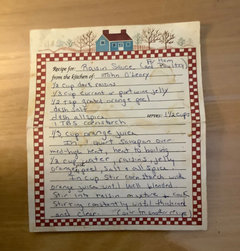 For Ham
Recipe for: Raisin Sauce (and Poultry)
from the kitchen of: O'Leary
1/2 cup dark raisins
1/3 cup currant or port wine jelly
1/2 tsp grated orange peel
dash salt
dash allspice serves: 1 1/2 cups
1 TBS cornstarch
1/3 cup orange juice
In 1 quart saucepan over
med-high heat, heat to boiling
1/2 cup water, raisins, jelly
orange peel, salt & allspice
In cup stir cornstarch with
orange juice until well blended.
Stir into raisin mixture & cook
Stirring constantly until thickened
and clear.